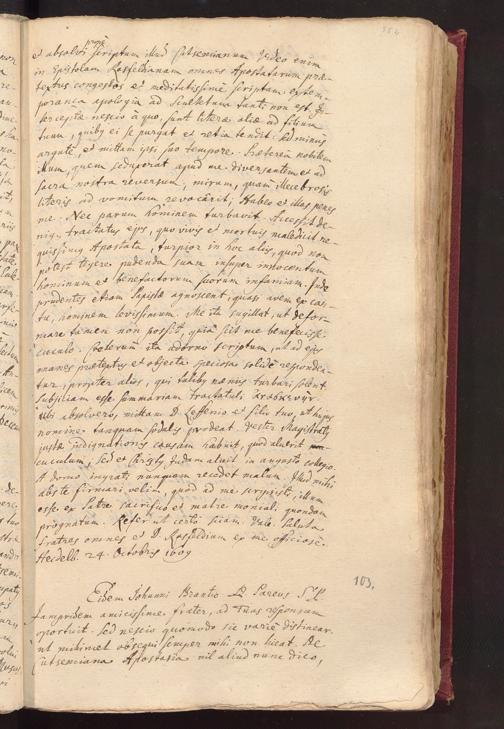 354
et absolvi propè scriptum illud Jutsenianum. Video enim
in Epistolam Rosselhanam omnes Apostatarum præ-
textus congestos et meditatissime scriptam: extem-
poranea apologia ad tanti non est. In-
tercepta nescio à quo, sunt literæ aliæ ad filium
suum, quibus ei se purgat et retia tendit: sed minus
argutè, et mittam ipsi suo tempore. Præterea nobilem
illum, quem seduxerat apud me diversantem et ad
sacra nostra reversum, mirum, quam illecebrosis
literis ad vomitum revocârit: Habeo et illas penes
me. Nec parum hominem turbavit. Accessit de-
niq. tractatus ejus, quo vivis et mortuis maledicit ne-
quissimus Apostata, turpior in hoc aliis, quod non
potest tegere pudenda sua insuper innocentum
hominum et benefactorum suorum infamiam. Inde
prudentes etiam Papistæ agnoscent, quasi avem ex can-
tu, hominem levissimum. Me ita sugillat, ut defor-
mare tamen non possit, quia scit me benefecisse
cuculo. Postremum ita adorno scriptum, ut ad ejus
omnes prætextus et objecta speciosa solidè respondea-
tur, propter alios, qui talibus næniis turbari solent.
Subjiciam esse summariam tractatuli
Ubi absolvero, mittam D. Zessenio et filio tuo, et hujus
nomine tanquam sodalis prodeat. Vester Magistratus
justam indignationis causam habuit, quod aluerit
cuculum, sed et Christus Judam aluit in angusto collegio.
A domo ingrati nunquam recedet malum. Illud mihi
abs te firmari velim, quod ad me scripsisti, illum
esse ex patre sacrifico et matre moniali quondam
prognatum. Refer ut certò sciam. Vale. Saluta
Fratres omnes et D. Rosseldium ex me officiosè.
Heidelb. 24. Octobris 1609
103.
Eidem Johanni Brantio D. Pareus S. P.
Jampridem amicissime frater, ad Tuas responsam
oportuit. Sed nescio quomodo sic variè distinear,
ut mihimet obsequi semper mihi non liceat. De
Jutseniana Apostasia nil aliud nunc dico,